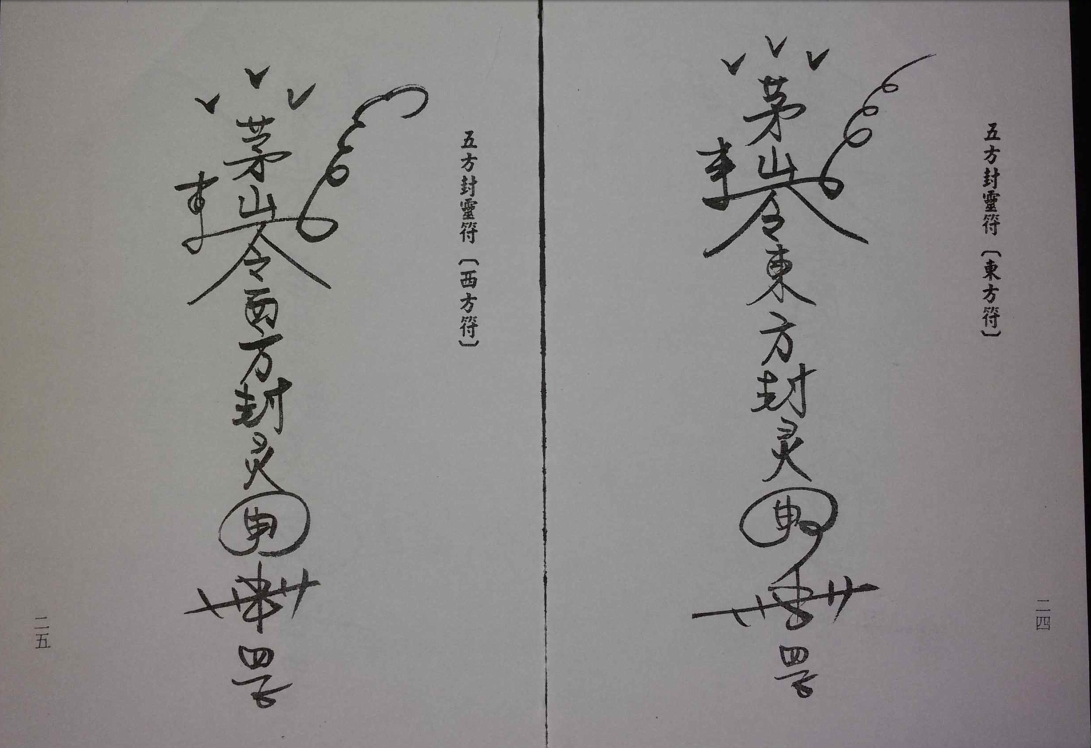 五方封靈符〔東方符〕
茅山令東方封灵
罡
二四
五方封靈符〔西方符〕
茅山令西方封灵
罡
二五